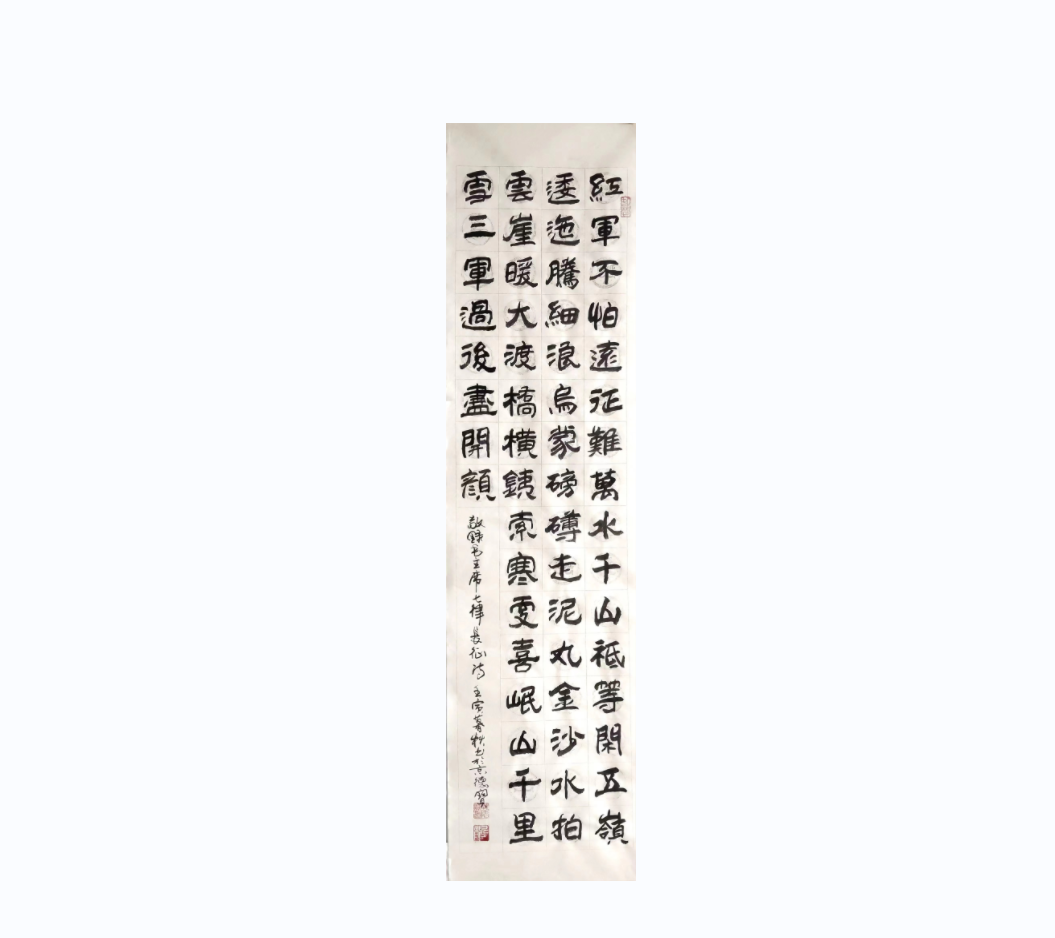 紅軍不怕遠征難萬水千山祗等閑五嶺
逶迤騰細浪烏蒙磅礴走泥丸金沙水拍
雲崖暖大渡橋橫銕索寒更喜岷山千里
雪三軍過後盡開顏
敬録毛主席七律長征詩 壬寅暮秋書於京德寶